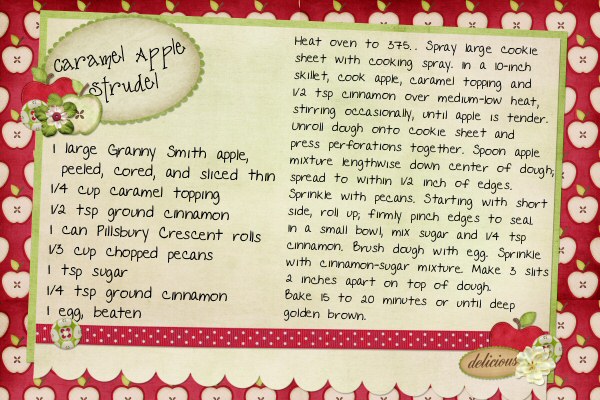 Caramel Apple
Strudel
1 large Granny Smith apple,
peeled, cored, and sliced thin
1/4 cup caramel topping
1/2 tsp ground cinnamon
1 can Pillsbury Crescent rolls
1/3 cup chopped pecans
1 tsp sugar
1/4 tsp ground cinnamon
1 egg, beaten
Heat oven to 375.. Spray large cookie
sheet with cooking spray. In a 10-inch
skillet, cook apple, caramel topping and
1/2 tsp cinnamon over medium-low heat,
stirring occasionally, until apple is tender.
Unroll dough onto cookie sheet and
press perforations together. Spoon apple
mixture lengthwise down center of dough,
spread to within 1/2 inch of edges.
Sprinkle with pecans. Starting with short
side, roll up; firmly pinch edges to seal.
In a small bowl, mix sugar and 1/4 tsp
cinnamon. Brush dough with egg. Sprinkle
with cinnamon-sugar mixture. Make 3 slits
2 inches apart on top of dough.
Bake 15 to 20 minutes or until deep
golden brown.
delicious